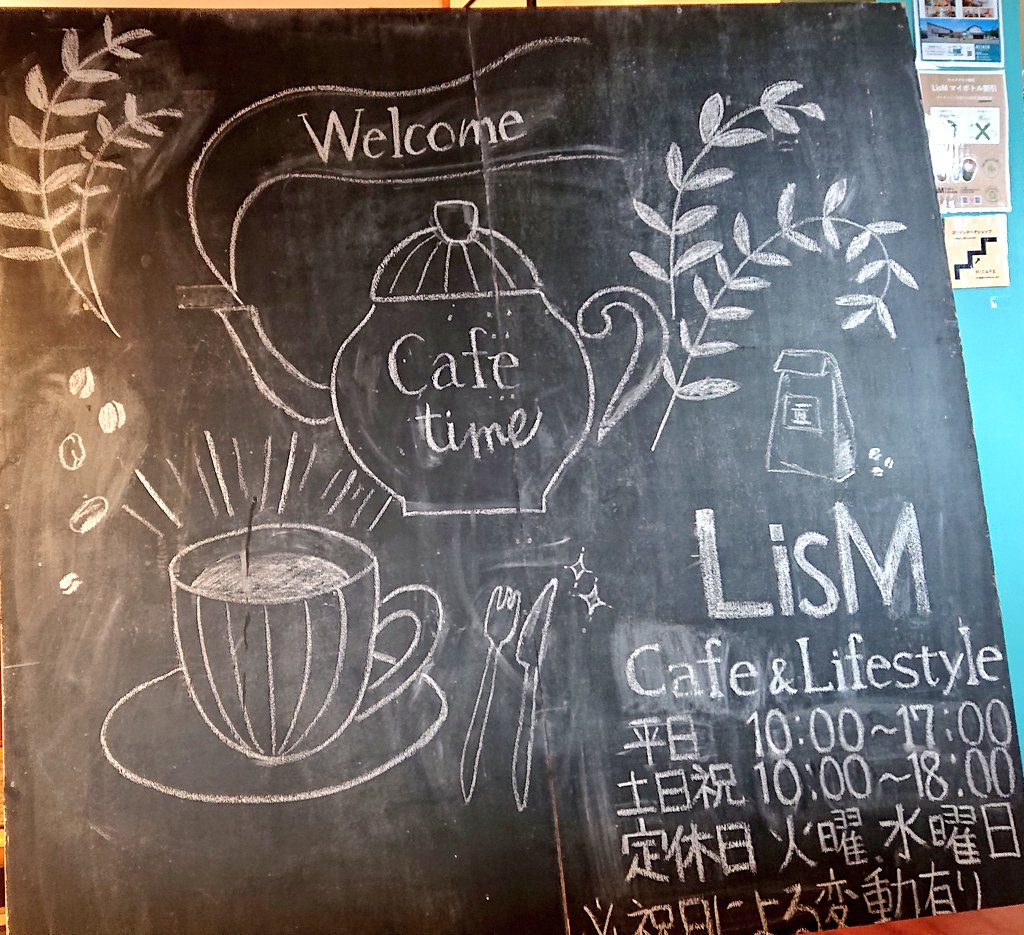 Welcome
Cafe
time
LisM
Cafe & Lifestyle
平日 10:00~17:00
土日祝 10:00~18:00
定休日 火曜、水曜日
※祝日による変動有り
LisM マイボトル割引